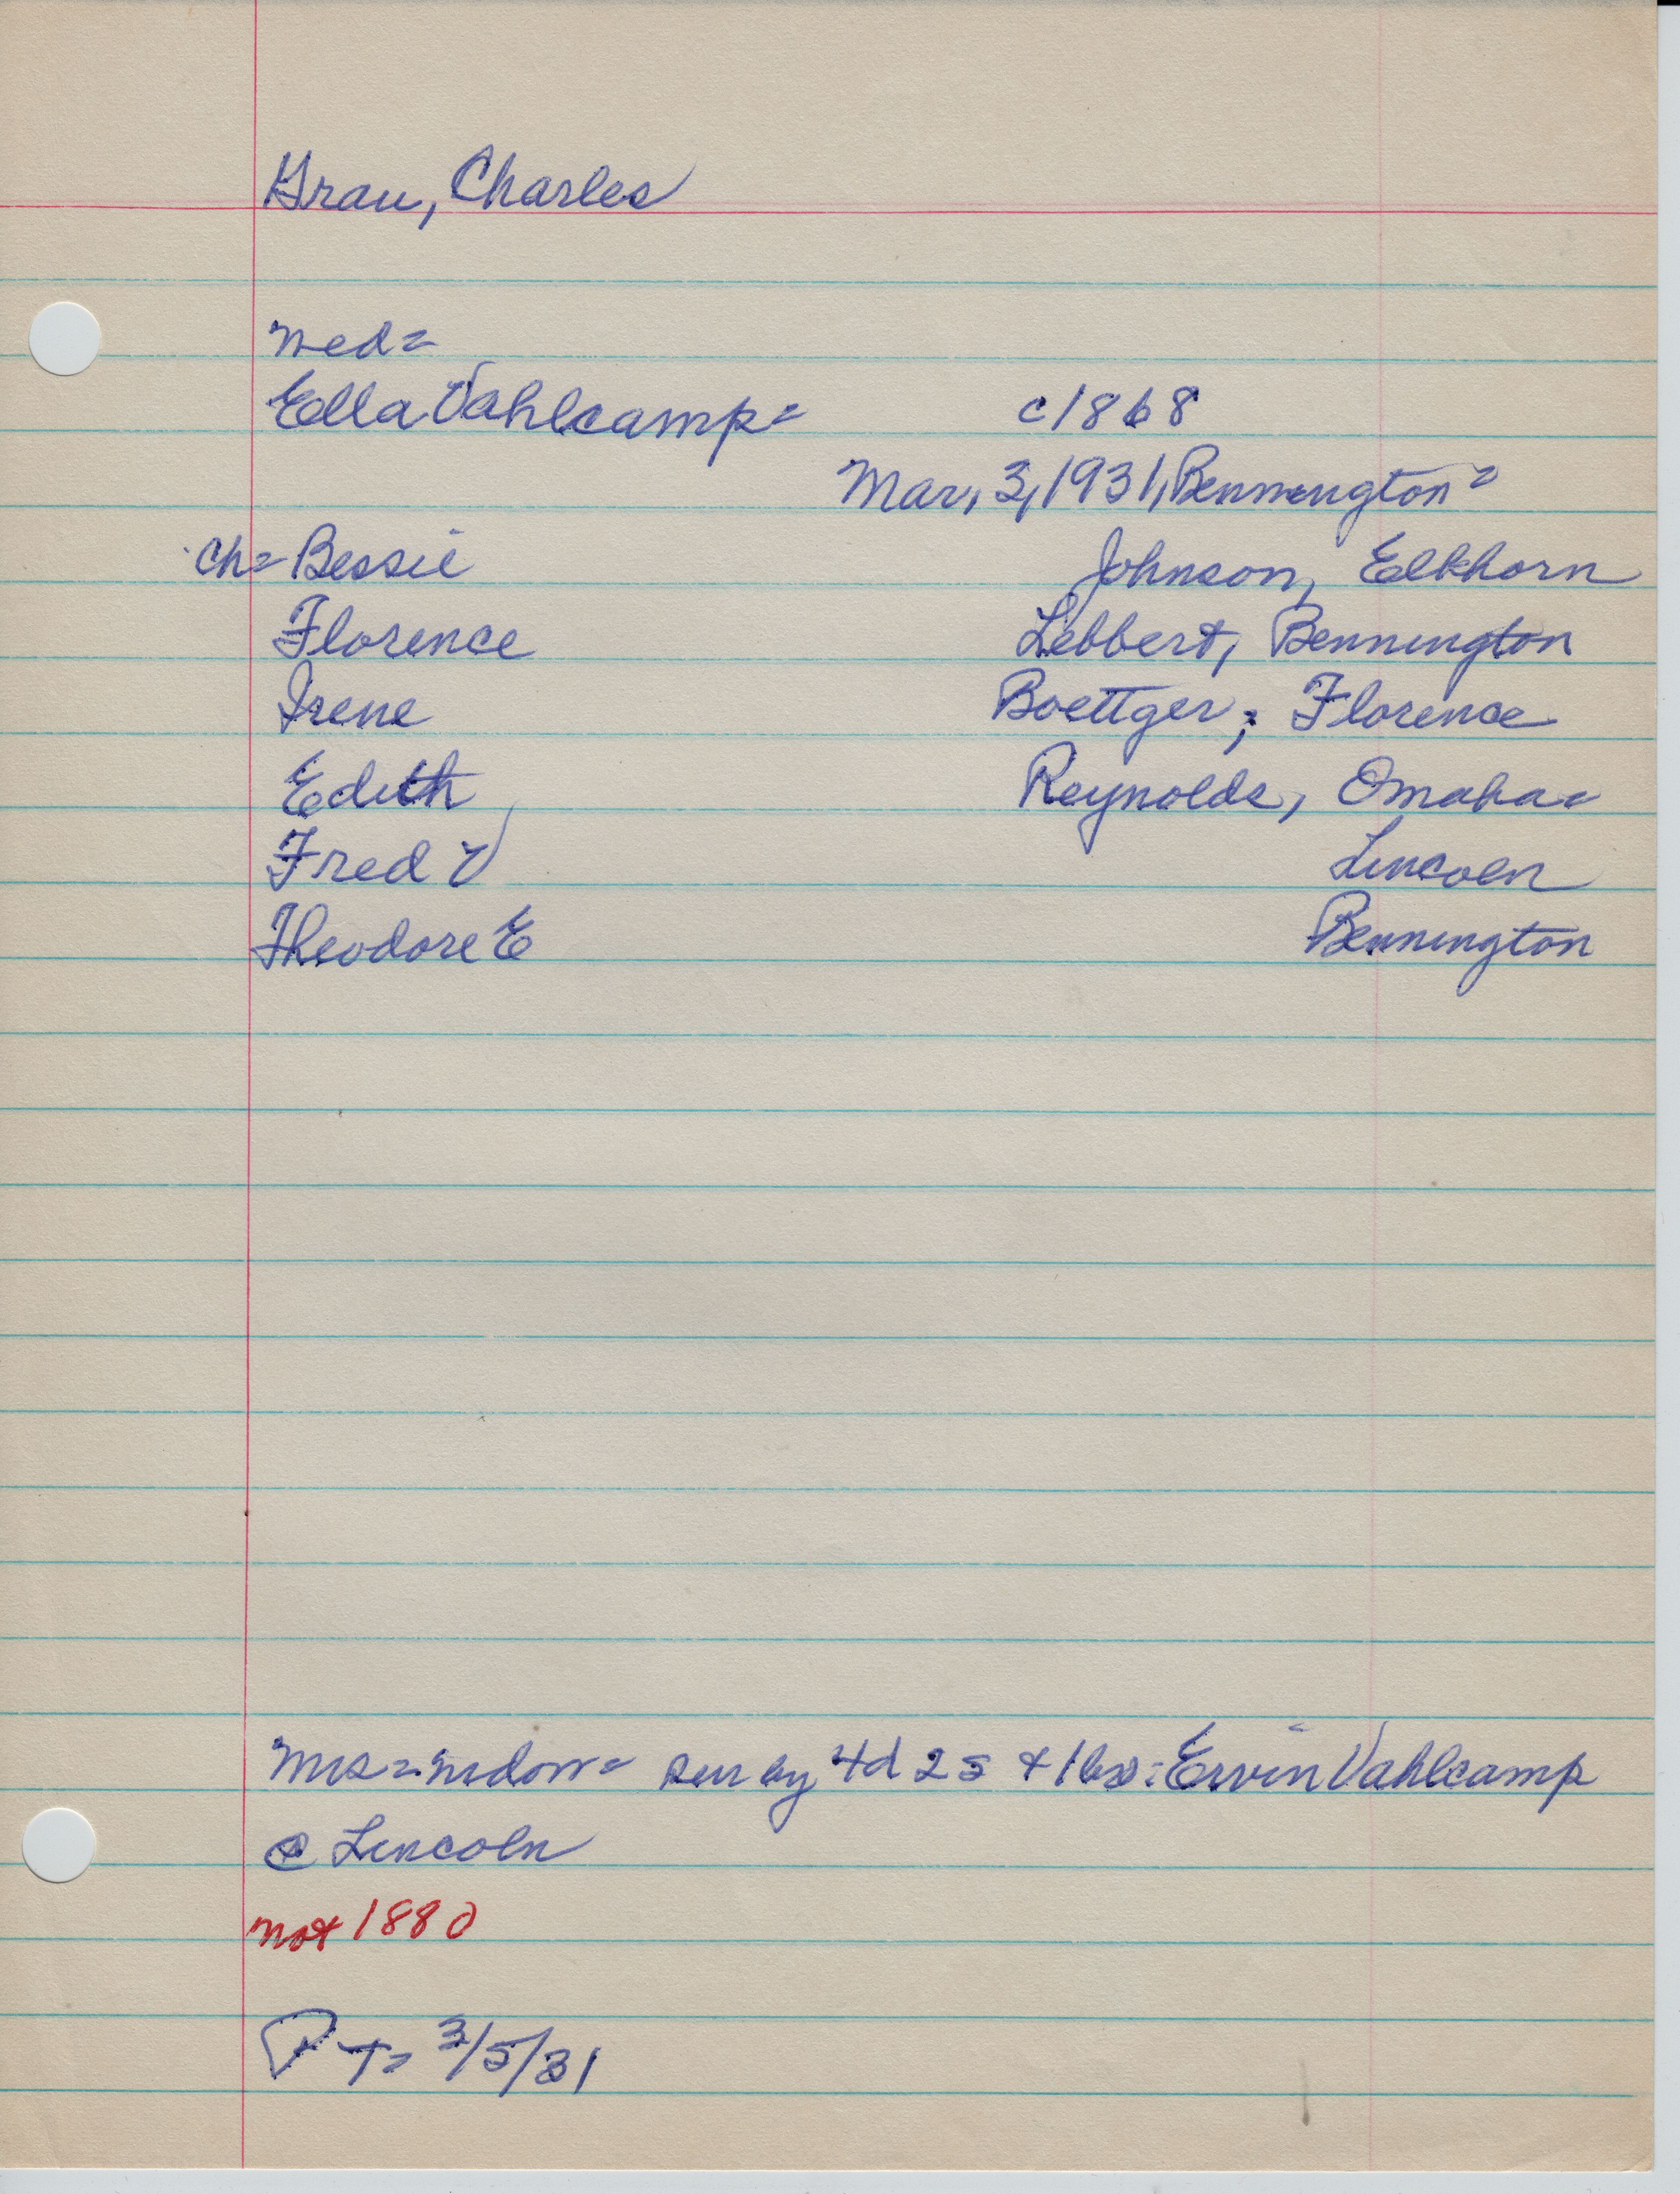 Grau, Charles
wed=
Ella Vahlcamp= c1868
Mar, 3, 1931, Bennington=
ch= Bessie Johnson, Elkhorn
Florence Lebbert, Bennington
Irene Boettger, Florence
Edith Reynolds, Omaha=
Fred V Lincoln
Theodore E Bennington
Mrs= widow= sur by 4d 2s + 1br: Ervin Vahlcamp
@ Lincoln
not 1880
T= 3/5/31